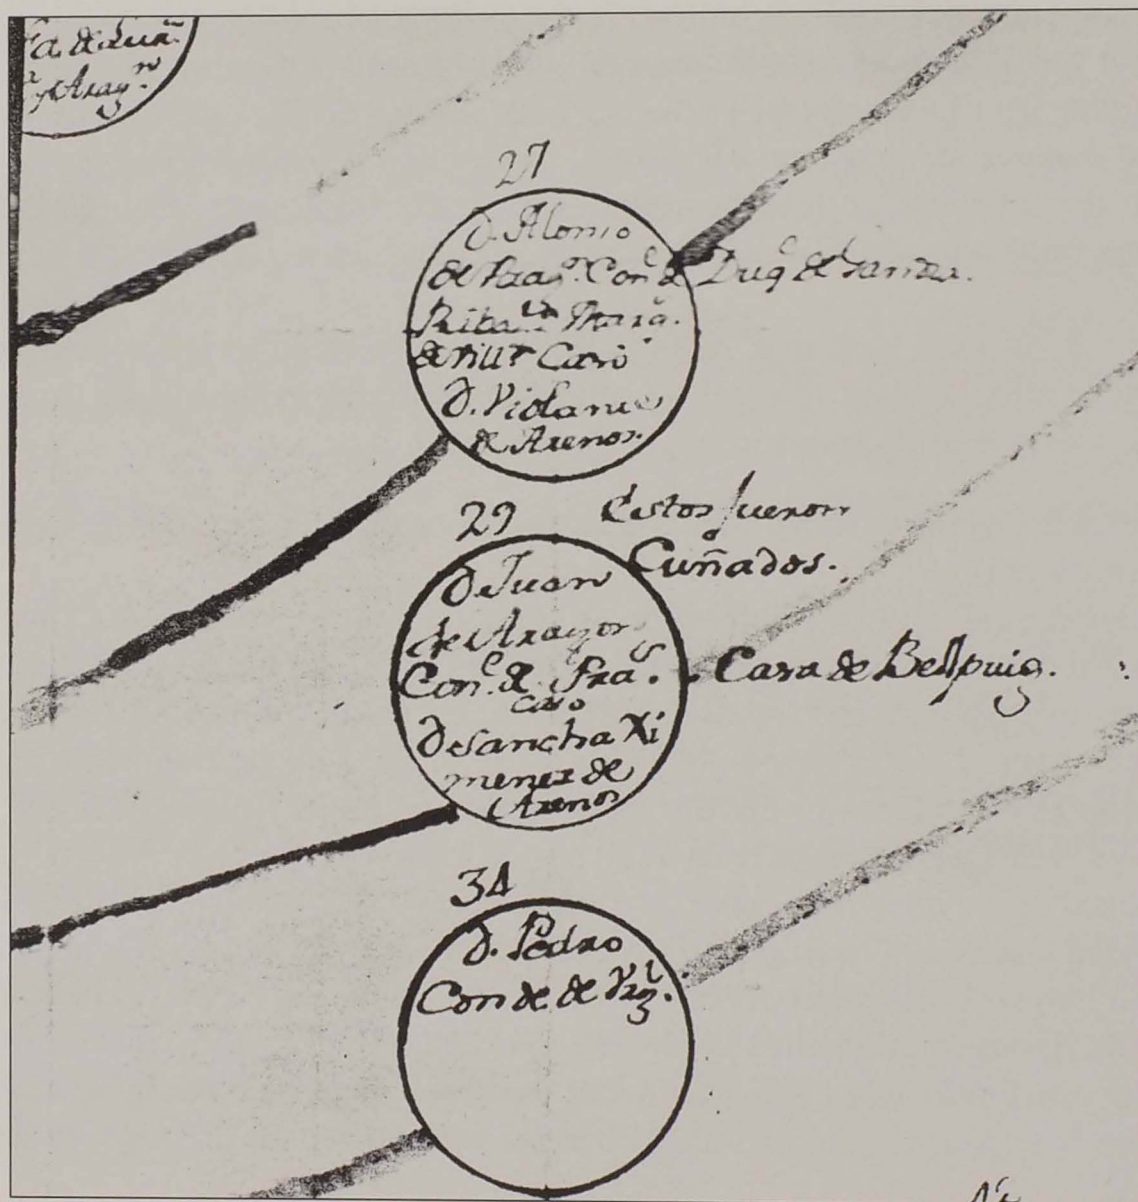 fa. de Luna
y Arag.n
27
D. Alonso
de Arag.n Con.e de
Riba.za Marq.
de Vill.a Casó
D. Violante
de Arenos.
Duq.e de Gandia.
Estos fueron
Cuñados.
29
D. Juan
de Aragon
Con.e de Pra.s
caso
D. Sancha Xi
menez de
Arenos
Casa de Bellpuig.
34
D. Pedro
Conde de Vrg.l